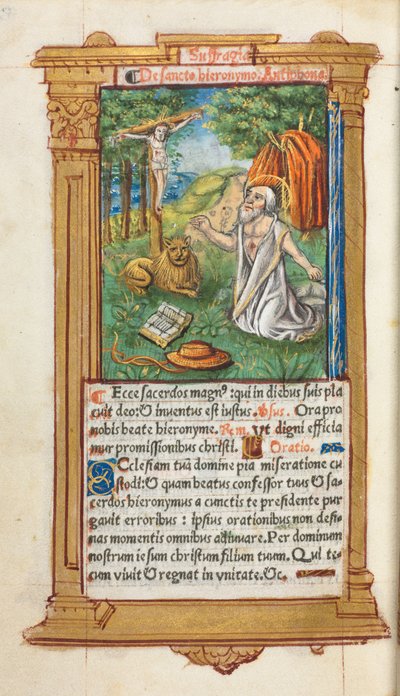 Suffragia
¶ De sancto hieronymo. Antiphona.
¶ Ecce sacerdos magnꝰ : qui in diebus suis pla
cuit deo: & inventus est iustus. Vſus. Ora pro
nobis beate hieronyme. Rm̄. vt digni efficia
mur promissionibus christi. Oratio.
Ecclesiam tuā domine pia miseratione cu
stodi: & quam beatus confessor tuus & sa
cerdos hieronymus a cunctis te presidente pur
gavit erroribus : ipsius orationibus non desi
nas momentis omnibus adiuvare. Per dominum
nostrum iesum christum filium tuum. Qui te
cum vivit & regnat in vnitate. &c.